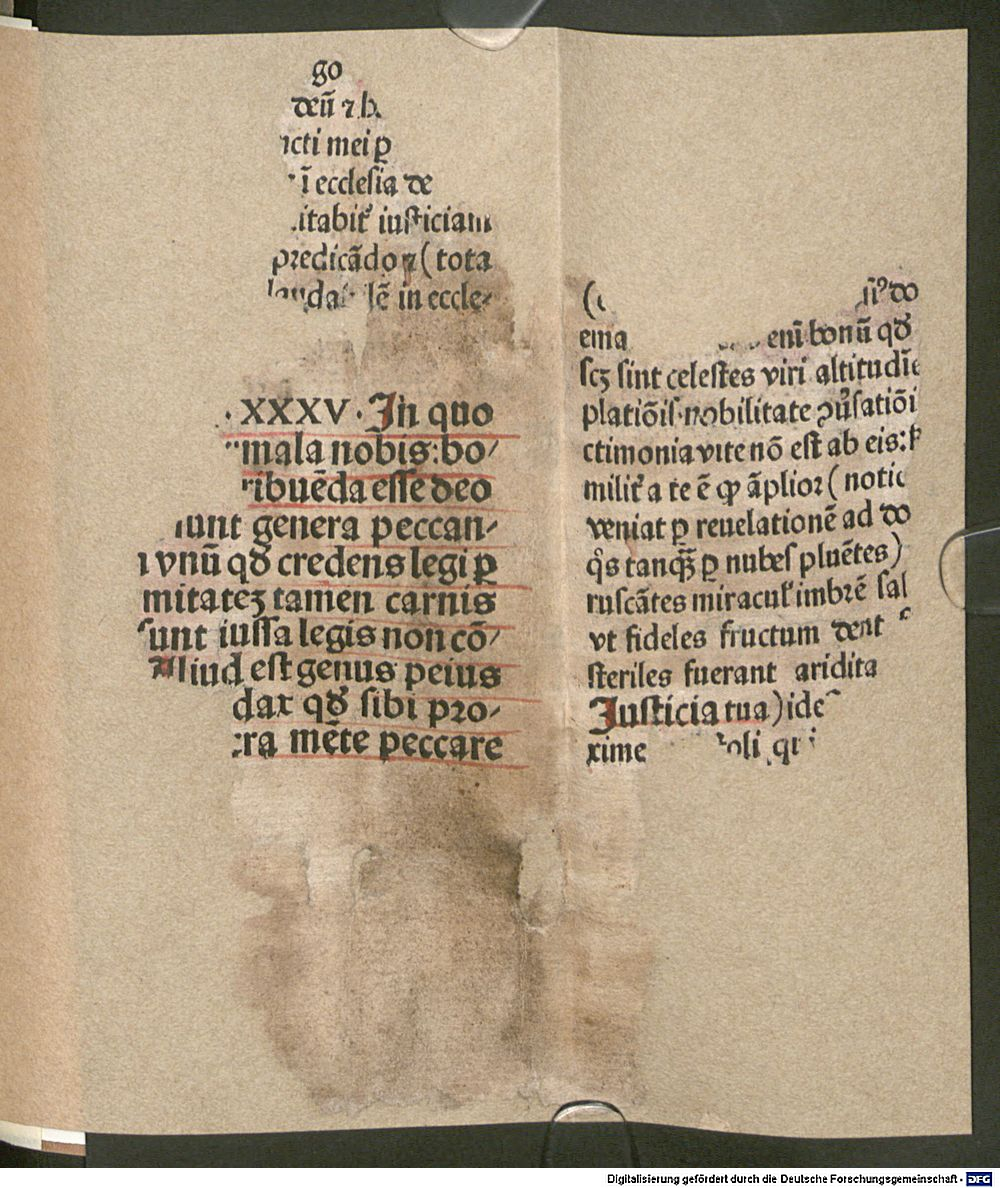 go
deū ⁊ b
cti mei ꝑ
ī ecclesia de
itabit᷑ iusticiam
predicādo ⁊ ( tota
lē in eccle⸗
.XXXV. In quo
mala nobis: bo/
ribuēda esse deo
sunt genera peccan/
vnū qđ credens legi ꝑ
mitateꝫ tamen carnis
sunt iussa legis non cō/
Aliud est genus peius
dax qđ sibi pro/
ra mēte peccare
(
do
ema enī bonū qđ
scꝫ sint celestes viri altitudīe
platiōis nobilitate ꝯūsatiōi
ctimonia vite nō est ab eis:
milit᷑ a te ē ꝙ āplior ( notic
veniat ꝑ reuelationē ad do
qͦs tanqȝ̄ ꝑ nubes pluētes )
ruscātes miracul᷑ imbrē sal
vt fideles fructum dent
steriles fuerant aridita
Justicia tua ) ide
xime oli qi
Digitalisierung gefördert durch die Deutsche Forschungsgemeinschaft - DFG